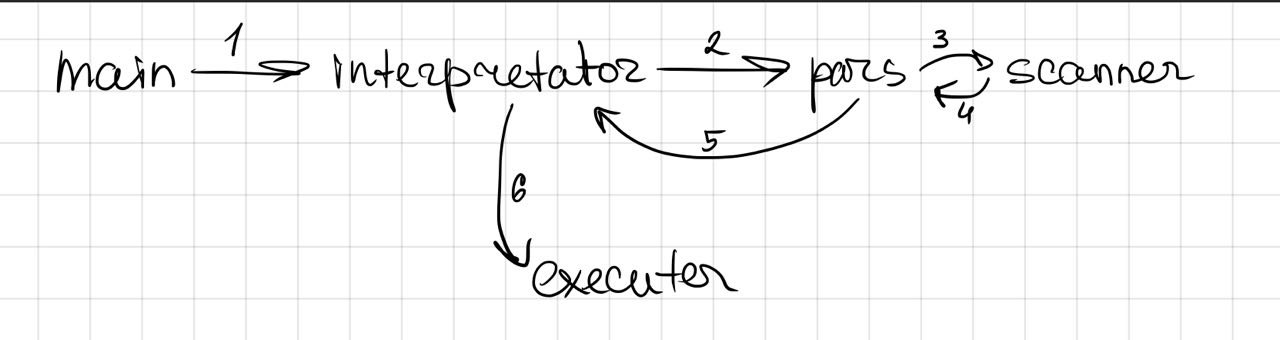 1 2 3
main interpretator pars scanner
4
5
6
executer